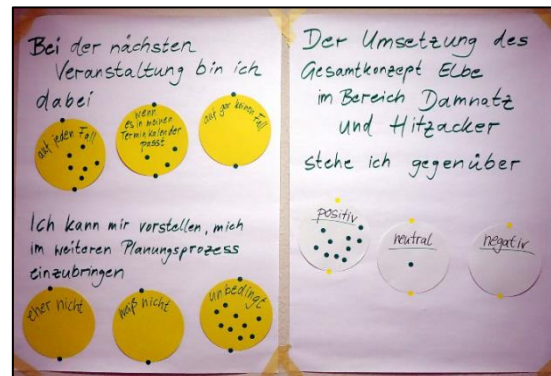 Bei der nächsten
Veranstaltung bin ich
dabei
auf jeden Fall
wenn
es in meinen
Terminkalender
passt
auf gar keinen Fall
Ich kann mir vorstellen, mich
im weiteren Planungsprozess
einzubringen
eher nicht
weiß nicht
unbedingt
Der Umsetzung des
Gesamtkonzept Elbe
im Bereich Damnatz
und Hitzacker
stehe ich gegenüber
positiv
neutral
negativ